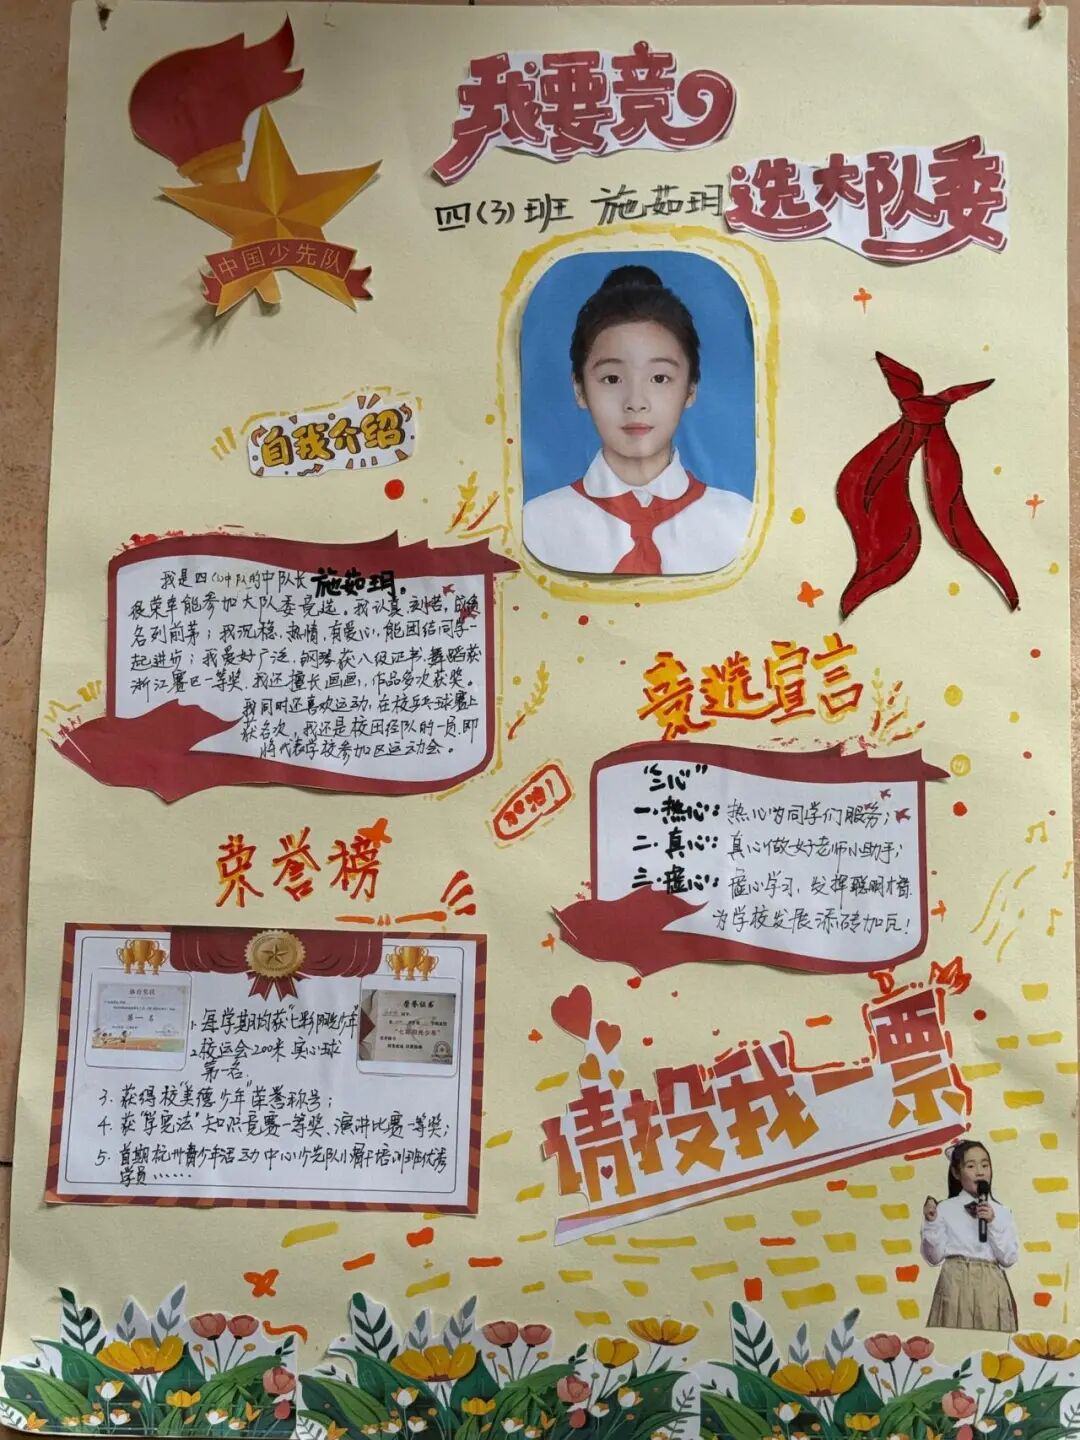 我要竞
选大队委
四(3)班 施茹玥
中国少先队
自我介绍
我是四(3)中队的中队长施茹玥。
很荣幸能参加大队委竞选。我认真、刻苦,成绩
名列前茅;我沉稳,热情,有爱心,能团结同学一
起进步;我爱好广泛,钢琴获八级证书,舞蹈获
浙江赛区一等奖,我还擅长画画,作品多次获奖。
我同时还喜欢运动,在校乒乓球赛上
获名次,我还是校田径队的一员,即
将代表学校参加区运动会。
竞选宣言
加油!
"三心"
一.热心:热心为同学们服务;
二.真心:真心做好老师小助手;
三.虚心:虚心学习,发挥聪明才智
为学校发展添砖加瓦!
荣誉榜
第一名
荣誉证书
"七彩阳光少年"
1.每学期均获"七彩阳光少年"
2.校运会200米 实心球
第一名.
3.获得校"美德少年"荣誉称号;
4.获"学宪法"知识竞赛一等奖、演讲比赛一等奖;
5.首期杭州青少年活动中心少先队小骨干培训班优秀
学员……
请投我一票